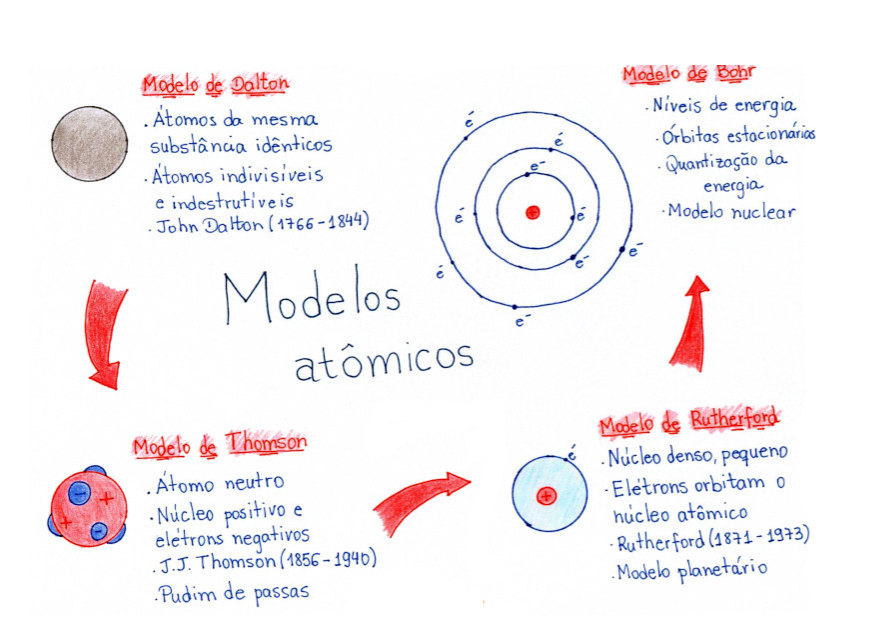 Modelo de Dalton
. Átomos da mesma
substância idênticos
. Átomos indivisíveis
e indestrutíveis
. John Dalton (1766-1844)
Modelo de Bohr
. Níveis de energia
. Órbitas estacionárias
. Quantização da
energia
. Modelo nuclear
é
é
e⁻
é
é
e⁻
e⁻
é
e⁻
+
Modelos
atômicos
Modelo de Thomson
. Átomo neutro
. Núcleo positivo e
elétrons negativos
. J.J. Thomson (1856-1940)
. Pudim de passas
-
+
+
-
Modelo de Rutherford
. Núcleo denso, pequeno
. Elétrons orbitam o
núcleo atômico
. Rutherford (1871-1973)
. Modelo planetário
é
+